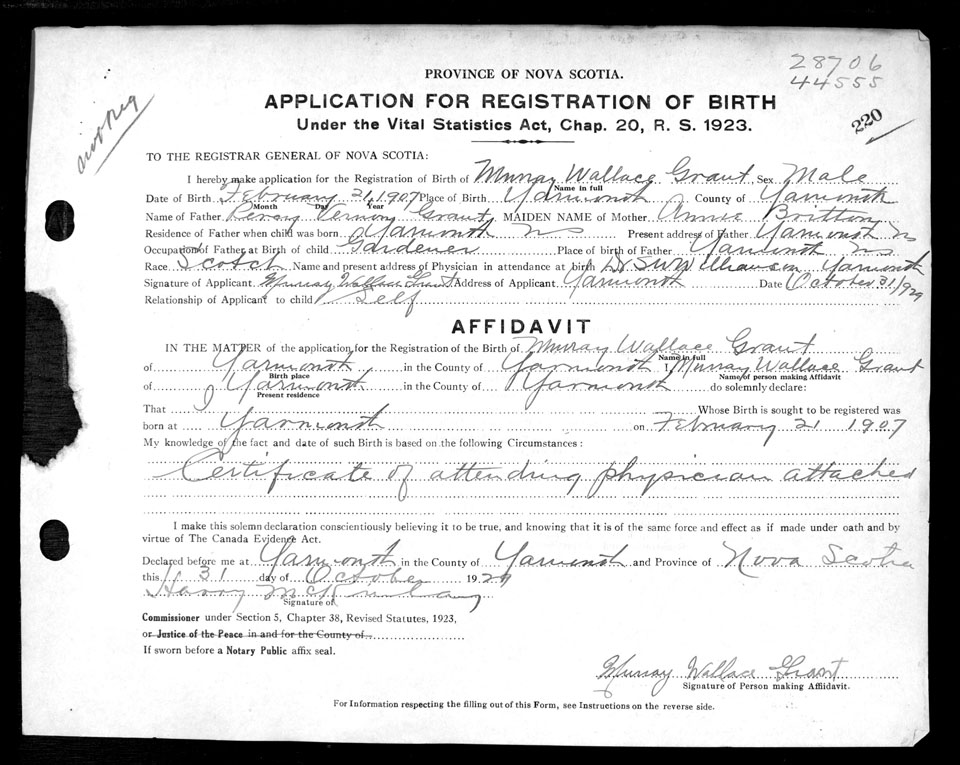 28706
44555
220
not reg
PROVINCE OF NOVA SCOTIA.
APPLICATION FOR REGISTRATION OF BIRTH
Under the Vital Statistics Act, Chap. 20, R. S. 1923.
TO THE REGISTRAR GENERAL OF NOVA SCOTIA:
I hereby make application for the Registration of Birth of Murray Wallace Grant Sex Male
Name in full
Date of Birth February 21, 1907 Place of Birth Yarmouth County of Yarmouth
Month Day Year
Name of Father Vernon Grant MAIDEN NAME of Mother Annie Britton
Residence of Father when child was born Yarmouth NS Present address of Father Yarmouth NS
Occupation of Father at Birth of child Gardener Place of birth of Father Yarmouth NS
Race Scotch Name and present address of Physician in attendance at birth Dr SW Williamson Yarmouth
Signature of Applicant Murray Wallace Grant Address of Applicant Yarmouth Date October 31/929
Relationship of Applicant to child Self
AFFIDAVIT
IN THE MATTER of the application for the Registration of the Birth of Murray Wallace Grant
Name in full
of Yarmouth in the County of Yarmouth I, Murray Wallace Grant
Birth place Name of person making Affidavit
of Yarmouth in the County of Yarmouth do solemnly declare:
Present residence
That I Whose Birth is sought to be registered was
born at Yarmouth on February 21 1907
My knowledge of the fact and date of such Birth is based on the following Circumstances:
Certificate of attending physician attached
I make this solemn declaration conscientiously believing it to be true, and knowing that it is of the same force and effect as if made under oath and by
virtue of The Canada Evidence Act.
Declared before me at Yarmouth in the County of Yarmouth and Province of Nova Scotia
this 31 day of October 1929
Harry
Signature of
Commissioner under Section 5, Chapter 38, Revised Statutes, 1923,
or Justice of the Peace in and for the County of
If sworn before a Notary Public affix seal.
Murray Wallace Grant
Signature of Person making Affidavit.
For Information respecting the filling out of this Form, see Instructions on the reverse side.